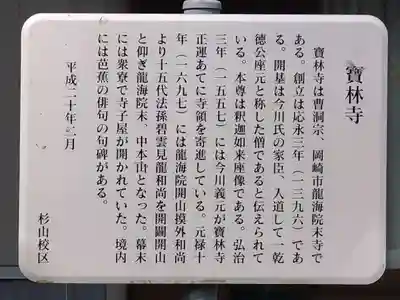 寶林寺
　寶林寺は曹洞宗、岡崎市龍海院末寺で
ある。創立は応永三年（一三九六）であ
る。開基は今川氏の家臣、入道して一乾
徳公座元と称した僧であると伝えられて
いる。本尊は釈迦如来座像である。弘治
三年（一五五七）には今川義元が寶林寺
正運あてに寺領を寄進している。元禄十
年（一六九七）には龍海院開山摸外和尚
より十五代法孫碧雲見龍和尚を開闢開山
と仰ぎ龍海院末、中本山となった。幕末
には衆寮で寺子屋が開かれていた。境内
には芭蕉の俳句の句碑がある。
平成二十年二月
杉山校区